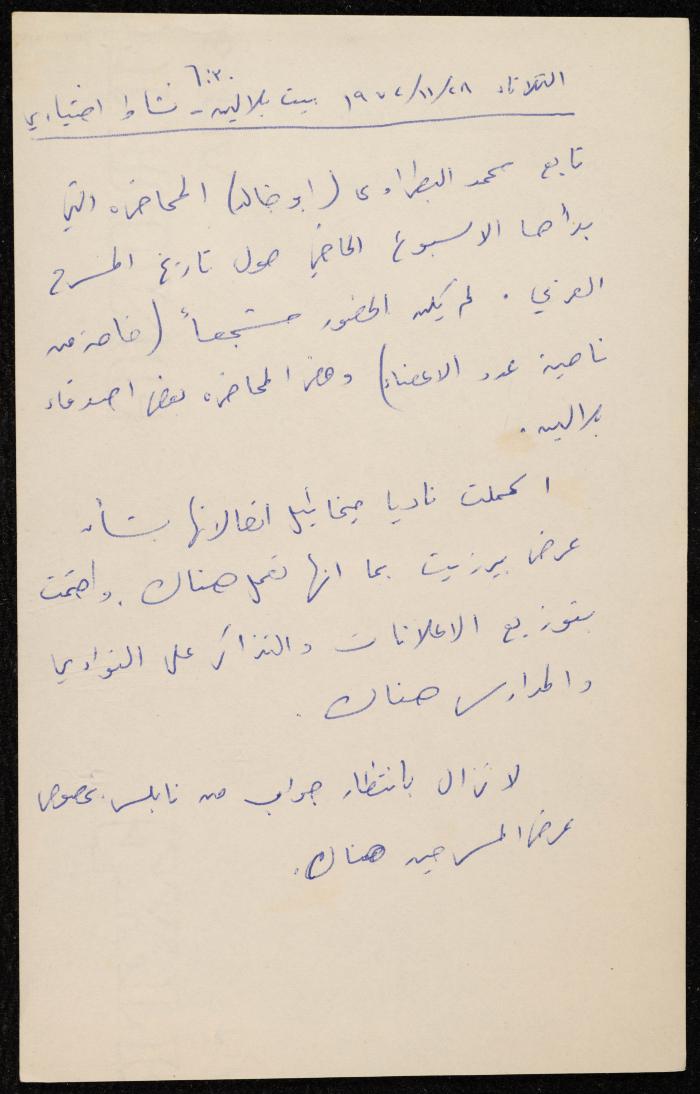 الثلاثاء ٢٨/١١/١٩٧٢ بيت بلالين - ٦:٣٠ نشاط اختياري
تابع محمد البطراوي (ابو خالد) المحاضره التي
بدأها الاسبوع الماضي حول تاريخ المسرح
العربي . لم يكن الحضور مشجعاً (خاصة من
ناحية عدد الاعضاء) وحضر المحاضره بعض اصدقاء
بلالين .
اكملت ناديا ميخائيل اتصالاتها بشأن
عرض بيرزيت بما انها تعمل هناك . واهتمت
بتوزيع الاعلانات والتذاكر على النوادي
والمدارس هناك .
لا نزال بانتظار جواب من نابلس بخصوص
عرض المسرحيه هناك .